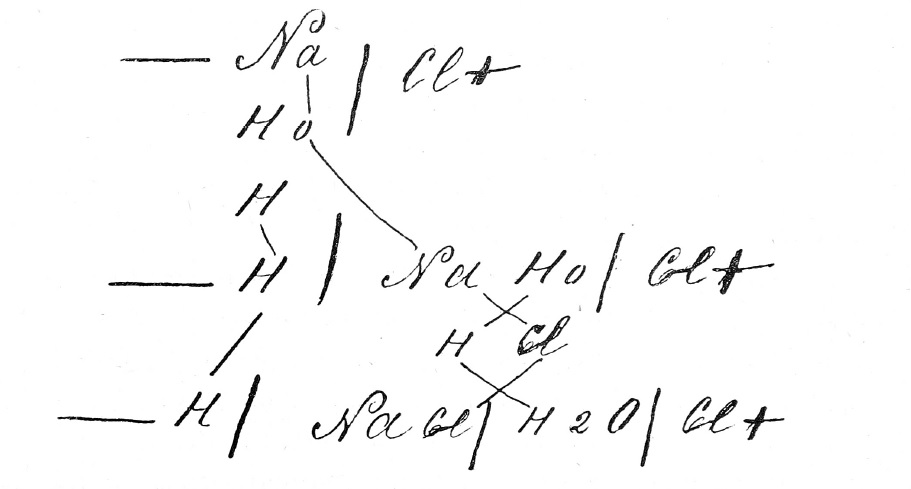 — Na | Cl +
H o
H
— H | Na Ho | Cl +
H Cl
— H | Na Cl | H 2 O | Cl +